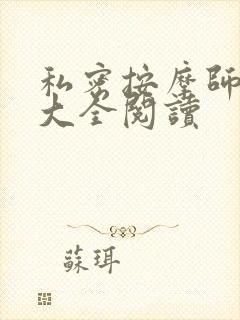 私密按摩師
大全閱讀
蘇珥